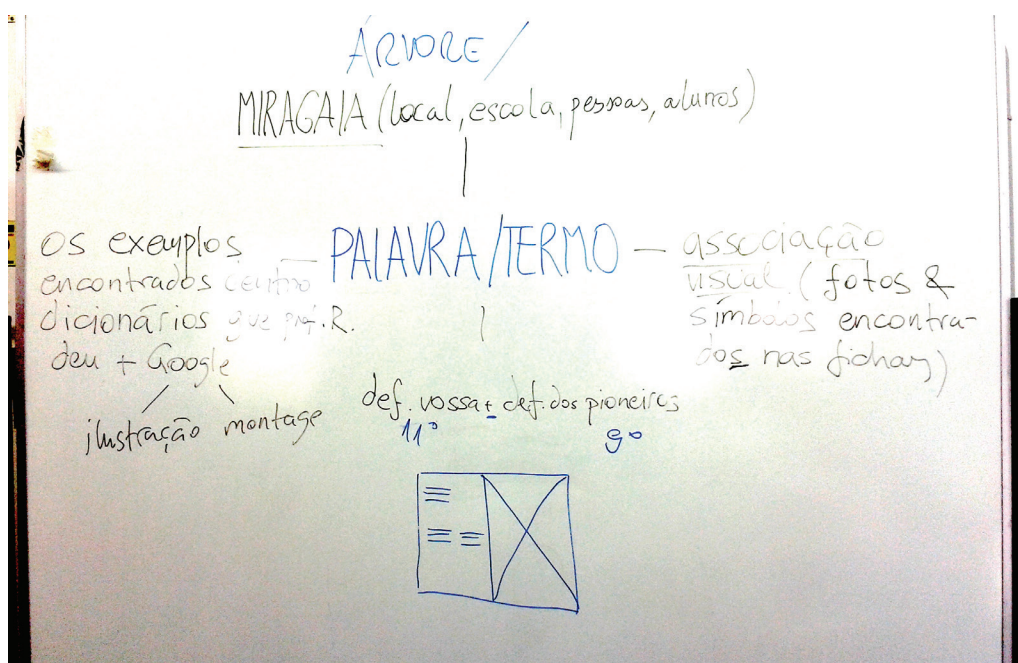 ÁRVORE/
MIRAGAIA (local, escola, pessoas, alunos)
os exemplos
encontrados centro
dicionários que prof. R.
deu + Google
ilustração montage
PALAVRA/TERMO
associação
visual (fotos &
símbolos encontra-
dos nas fichas)
def. vossa + def. dos pioneiros
11º 9º